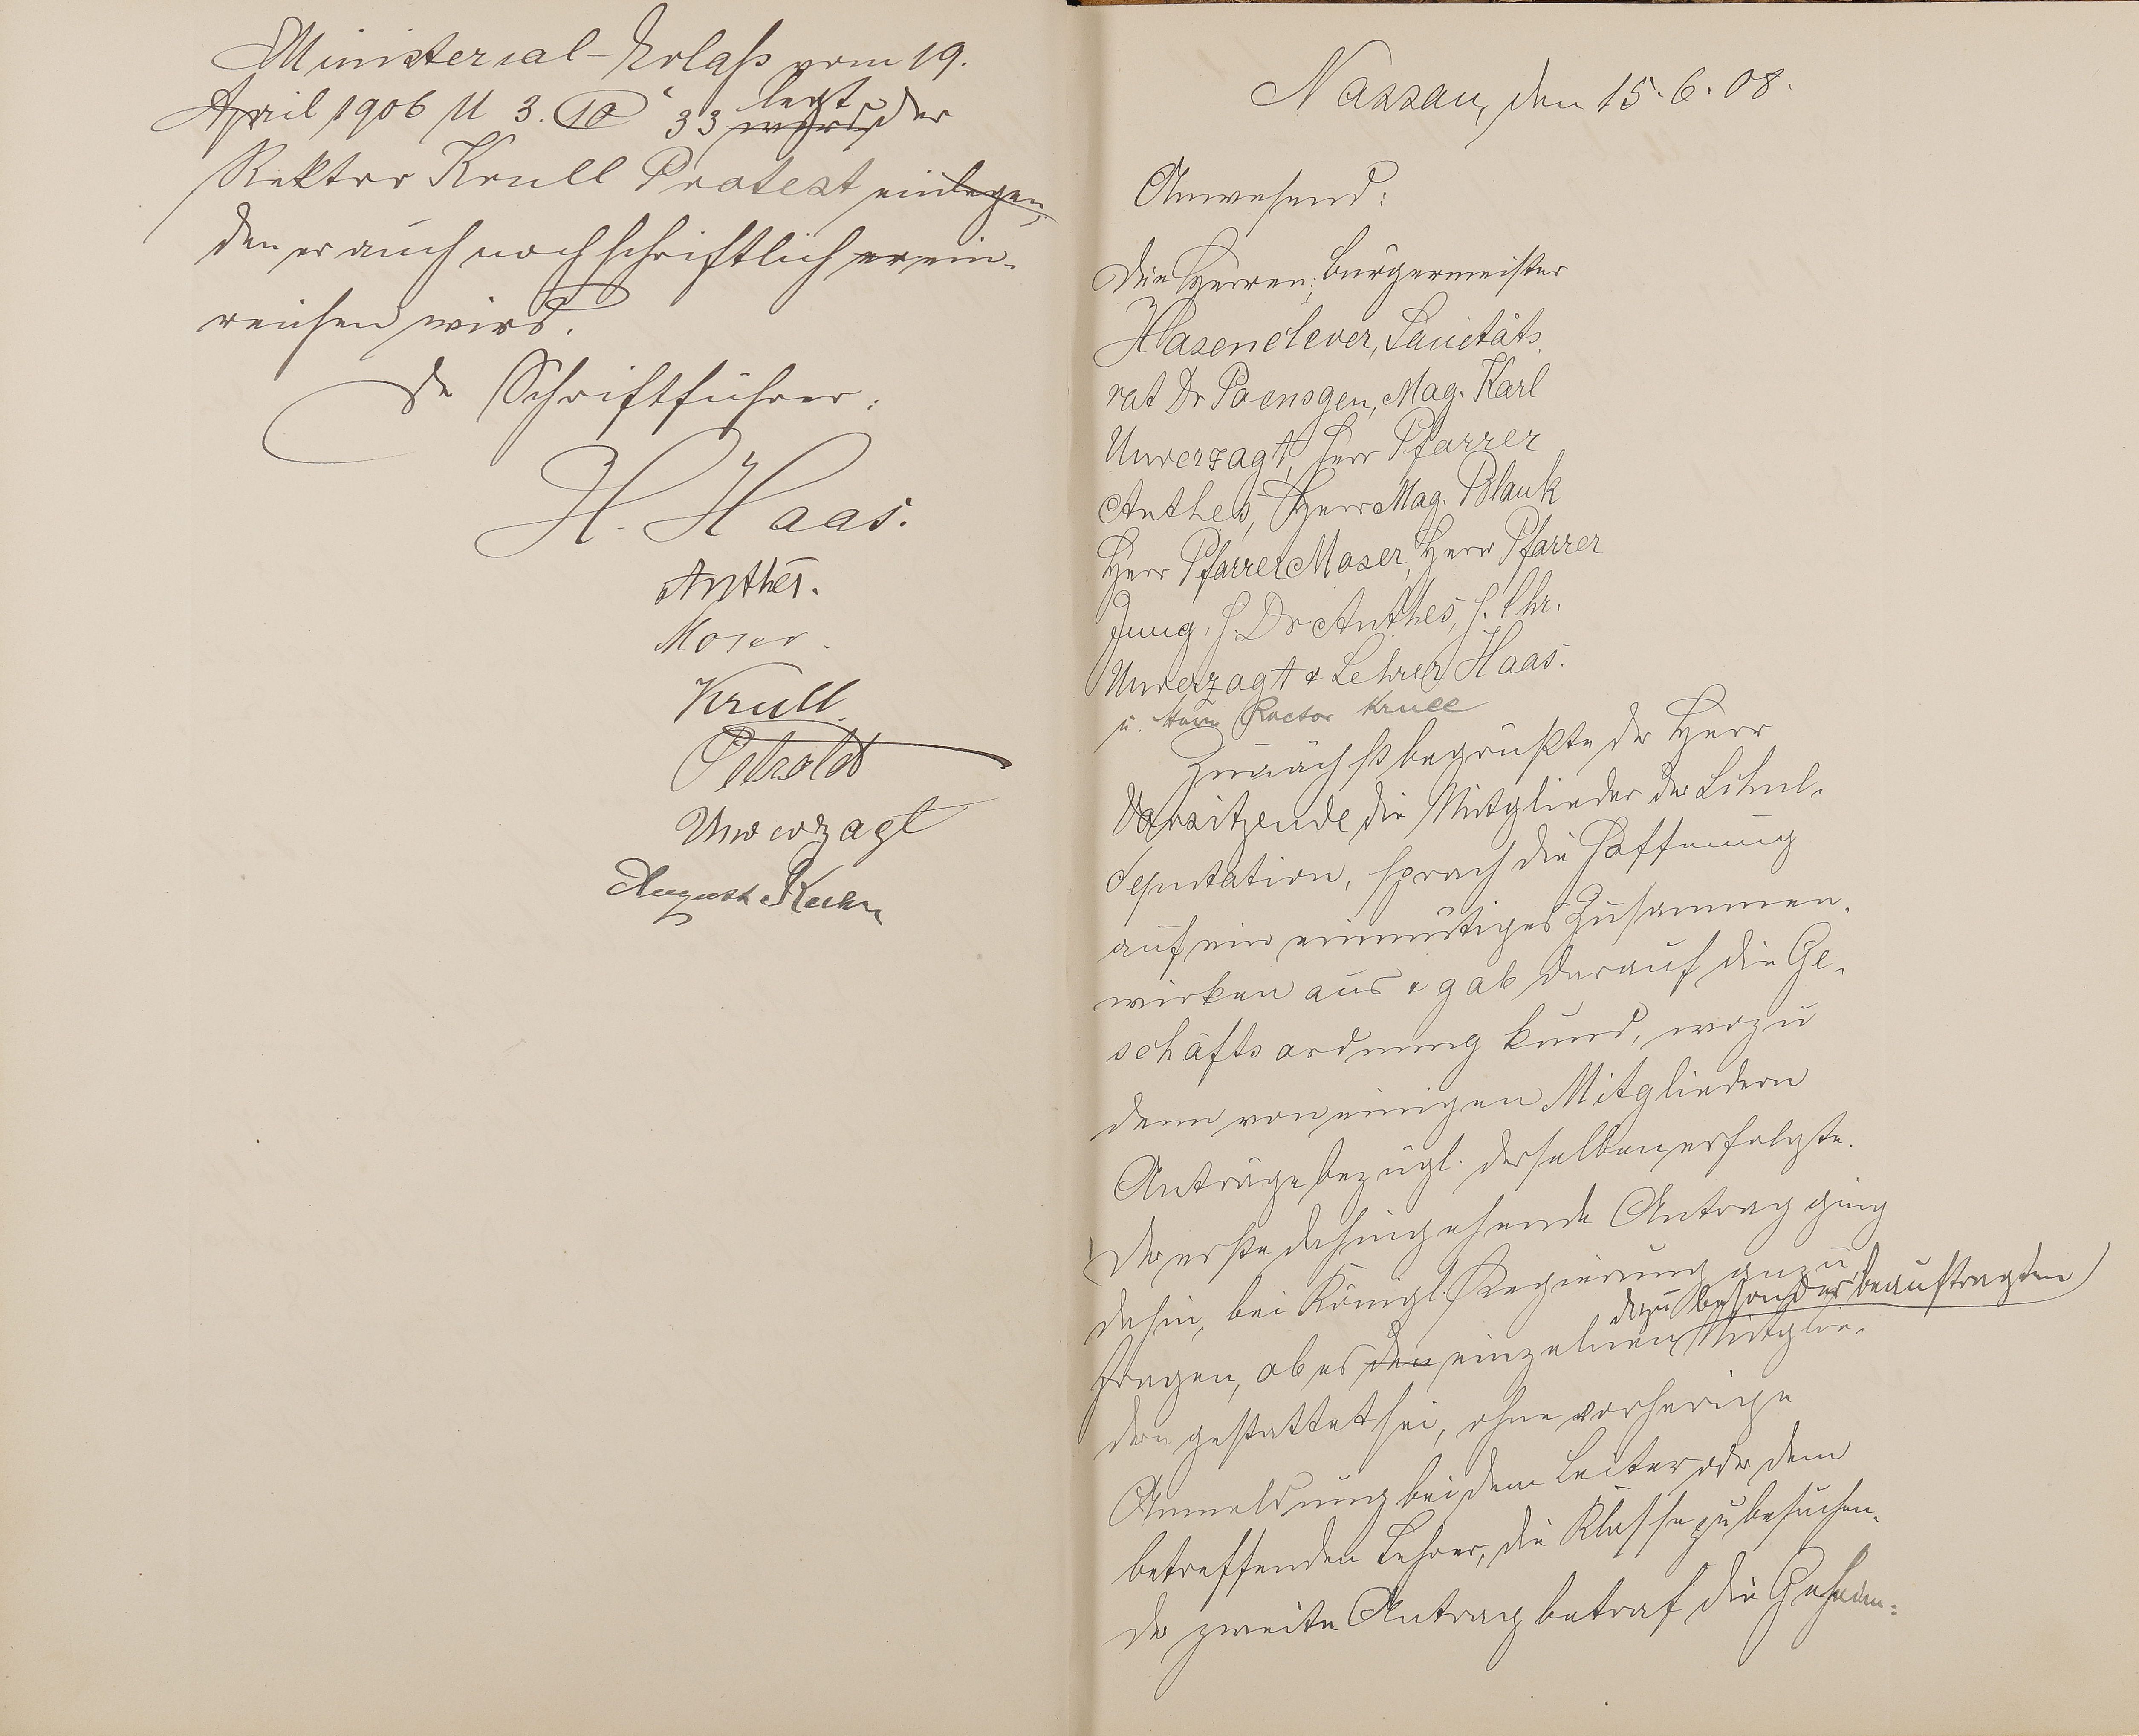 Ministerial-Erlaß vom 19.
April 1906 U 3. 10 33 wird legt der
Rektor Krull Protest einlegen,
den er auch noch schriftlich er ein-
reichen wird.
De Schriftführer:
H. Haas.
Anthes.
Moser.
Krull.
Petzoldt
Unverzagt
August Kuhn
Nassau, den 15. 6. 08.
Anwesend:
Die Herren: Bürgermeister
Hasenclever, Sanitäts
rat Dr Poensgen, Mag. Karl
Unverzagt, Herr Pfarrer
Anthes, Herr Mag. Blank
Herr Pfarrer Moser, Herr Pfarrer
Jung, H. Dr Anthes, H. Chr.
Unverzagt & Lehrer Haas.
u. Herr Rector Krull
Zunächst begrüßte der Herr
Vorsitzende die Mitglieder der Schul-
deputation, sprach die Hoffnung
auf ein einmütiges Zusammen-
wirken aus & gab darauf die Ge-
schäftsordnung kund, wozu
denn von einigen Mitgliedern
Anträge bezügl. derselben erfolgte.
Der erste dahingehende Antrag ging
dahin, bei Königl. Regierung anzu
dazu besonders beauftragten
fragen, ob es den einzelnen Mitglie-
dern gestattet sei, ohne vorherige
Anmeldung bei dem Leiter oder dem
betreffenden Lehrer, die Klasse zu besuchen.
de zweite Antrag betraf die Geheim-